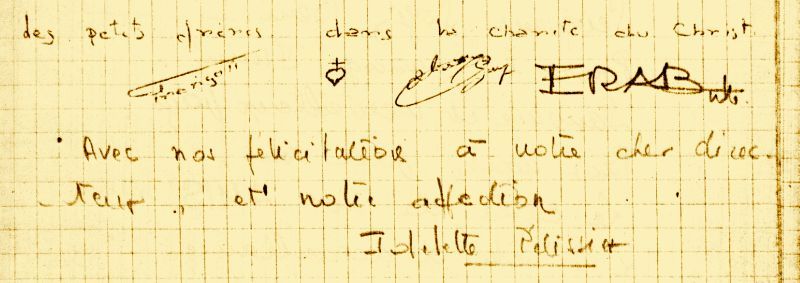 des petits frères dans la charité du Christ
ERAB
Avec nos félicitations à notre cher direc-
-teur, et notre affection
Idelette Pélissier